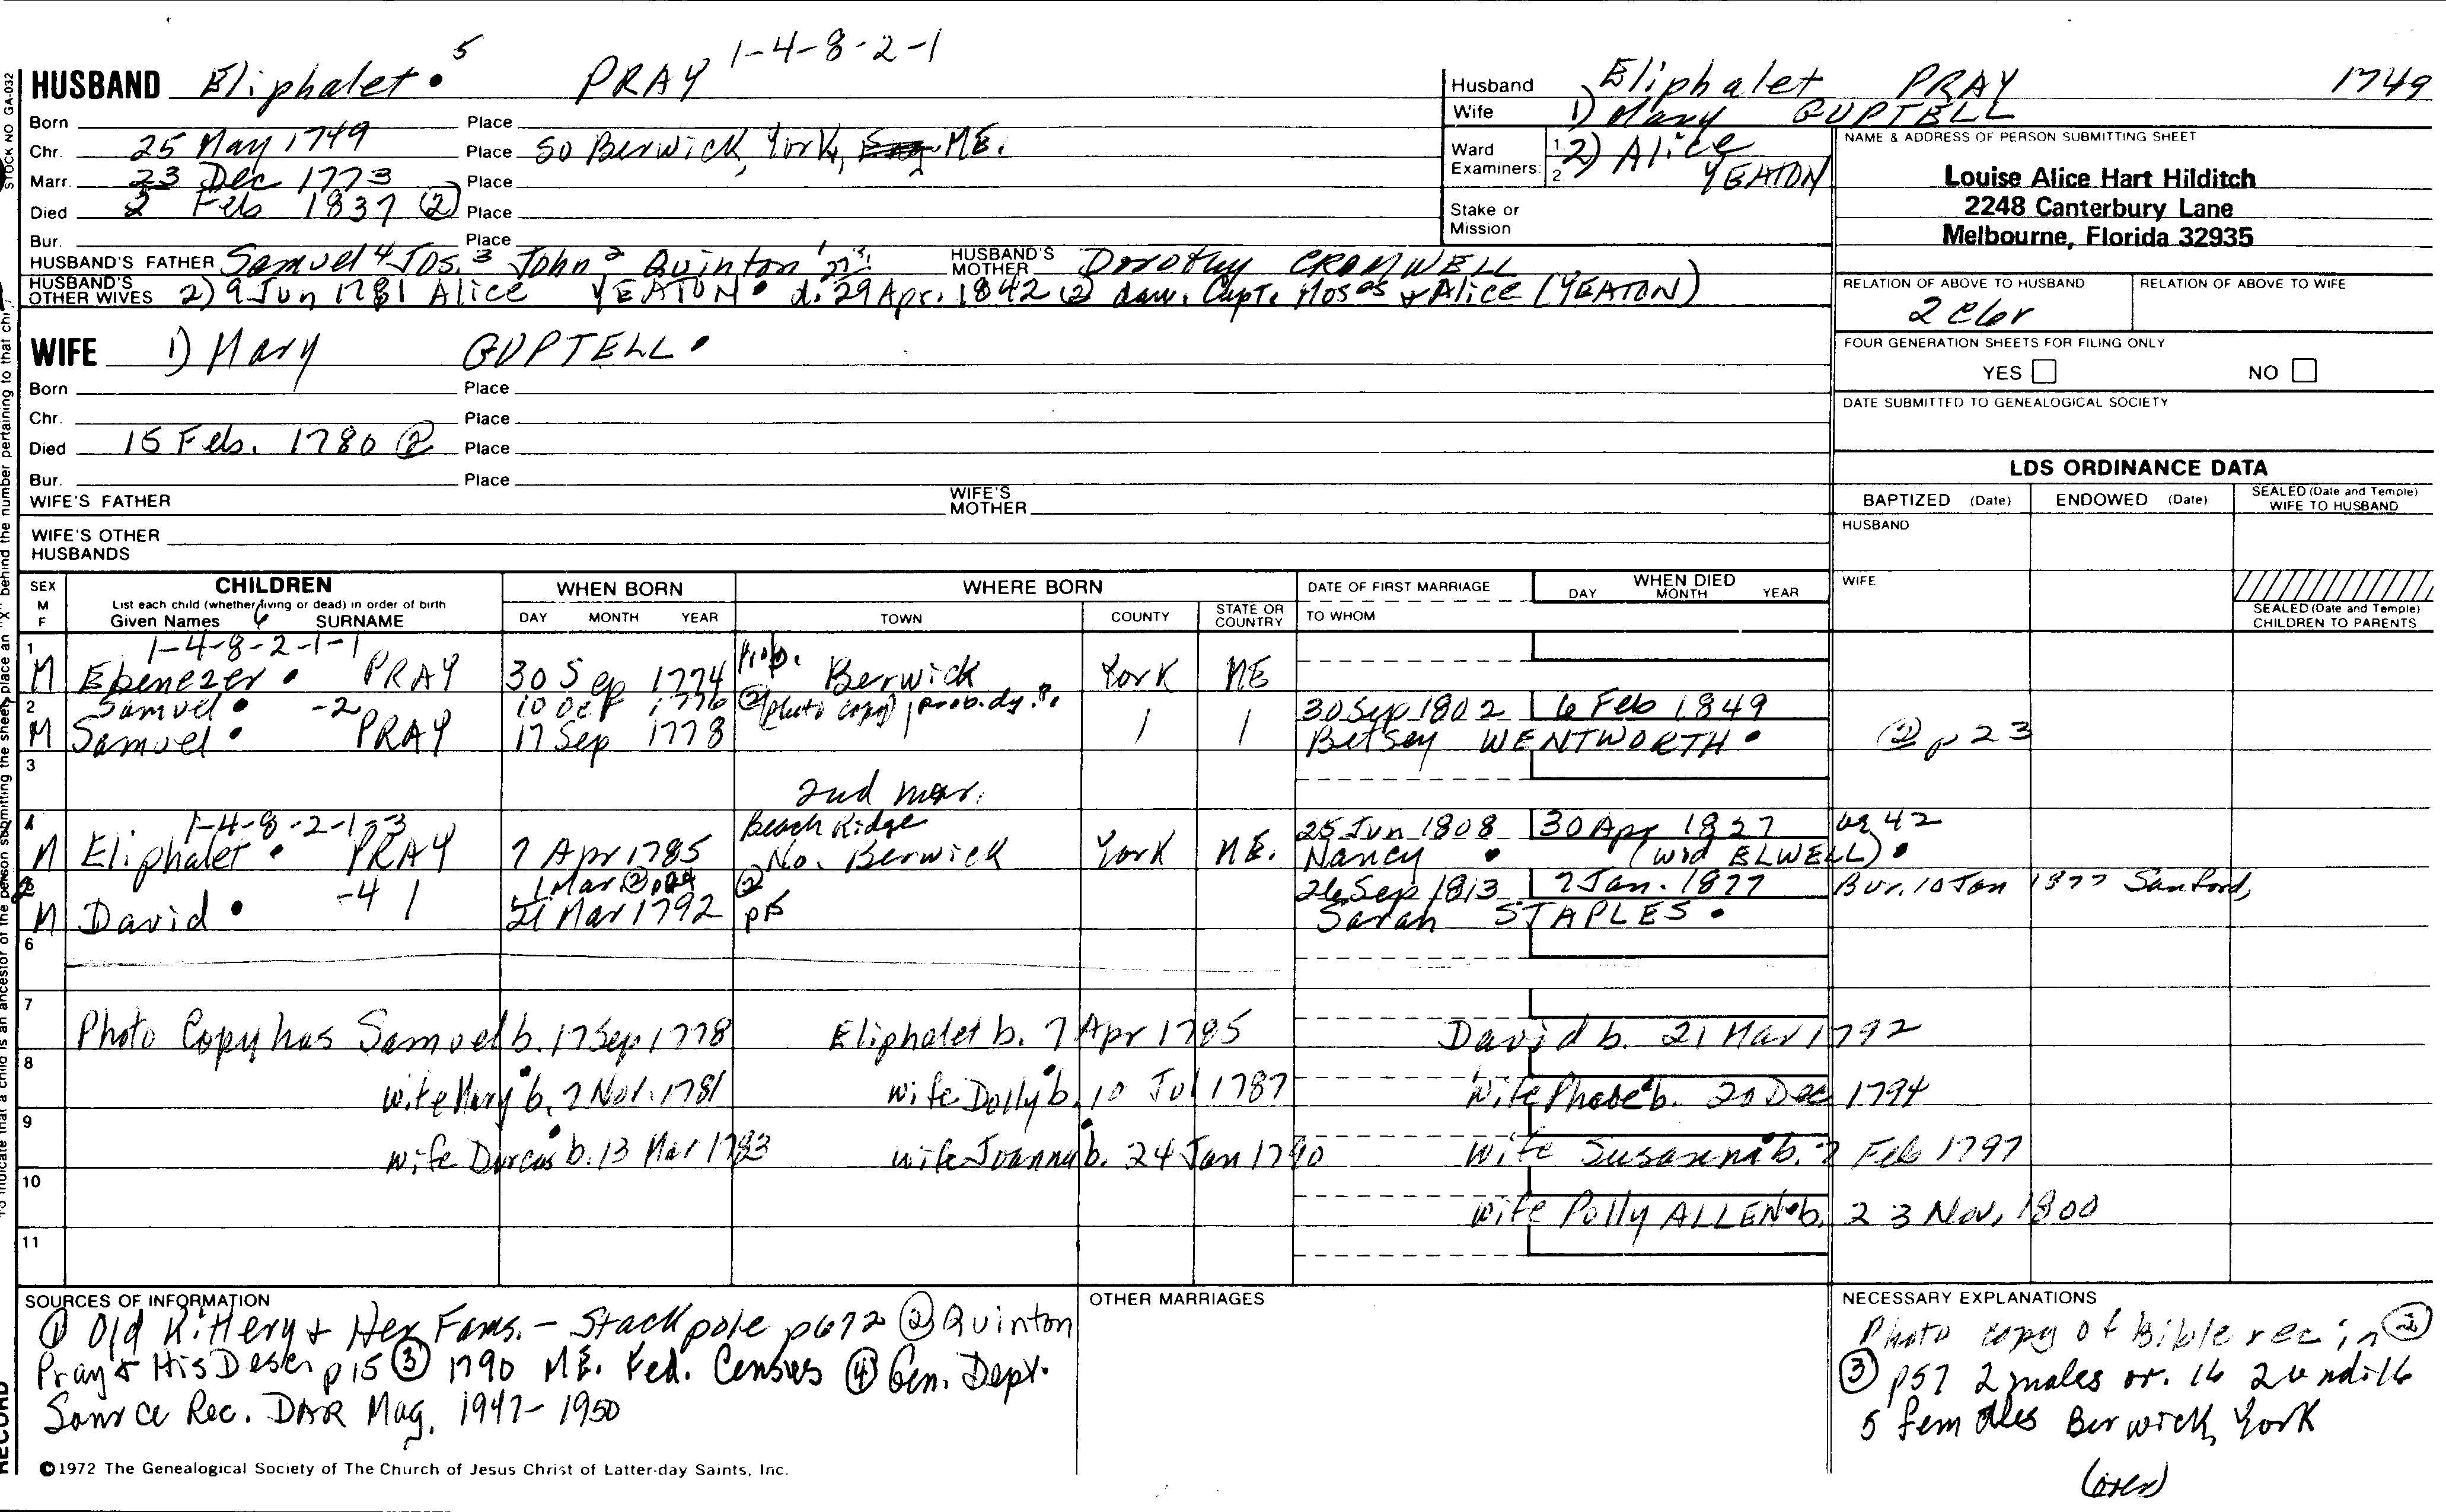 5
1-4-8-2-1
HUSBAND Eliphalet • PRAY
Born Place
Chr. 25 May 1749 Place So Berwick, York, ME.
Marr. 23 Dec 1773 Place
Died 2 Feb 1837 ② Place
Bur. Place
HUSBAND'S FATHER Samuel 4 Jos. 3 John 2 Quinton 1 HUSBAND'S MOTHER Dorothy CROMWELL
HUSBAND'S OTHER WIVES 2) 9 Jun 1781 Alice YEATON • d. 29 Apr. 1842 ② dau. Capt. Moses & Alice (YEATON)
WIFE 1) Mary GUPTELL •
Born Place
Chr. Place
Died 15 Feb. 1780 ② Place
Bur. Place
WIFE'S FATHER WIFE'S MOTHER
WIFE'S OTHER HUSBANDS
Husband Eliphalet PRAY 1749
Wife 1) Mary GUPTELL
Ward Examiners: 1. 2. 2) Alice YEATON
Stake or Mission
NAME & ADDRESS OF PERSON SUBMITTING SHEET
Louise Alice Hart Hilditch
2248 Canterbury Lane
Melbourne, Florida 32935
RELATION OF ABOVE TO HUSBAND RELATION OF ABOVE TO WIFE
2 c6r
FOUR GENERATION SHEETS FOR FILING ONLY
YES NO
DATE SUBMITTED TO GENEALOGICAL SOCIETY
LDS ORDINANCE DATA
BAPTIZED (Date) ENDOWED (Date) SEALED (Date and Temple) WIFE TO HUSBAND
HUSBAND
WIFE
SEALED (Date and Temple) CHILDREN TO PARENTS
SEX M F CHILDREN WHEN BORN WHERE BORN DATE OF FIRST MARRIAGE WHEN DIED
List each child (whether living or dead) in order of birth
Given Names 6 SURNAME DAY MONTH YEAR TOWN COUNTY STATE OR COUNTRY TO WHOM DAY MONTH YEAR
1 1-4-8-2-1-1 Prob.
M Ebenezer • PRAY 30 Sep 1774 Berwick York ME
2 Samuel • -2 10 Oct 1776 ② (photo copy) prob. dy. 30 Sep 1802 6 Feb 1849
M Samuel • PRAY 17 Sep 1778 Betsey WENTWORTH • ② p 23
3
2nd mar.
4 1-4-8-2-1-3 Beach Ridge 25 Jun 1808 30 Apr 1827 ag 42
M Eliphalet • PRAY 7 Apr 1785 No. Berwick York ME. Nancy • (wid ELWELL) •
5 -4 1 Mar ② p24 ② 26 Sep 1813 7 Jan. 1877 Bur. 10 Jan 1877 Sanford,
M David • 21 Mar 1792 p15 Sarah STAPLES •
6
7
Photo Copy has Samuel b. 17 Sep 1778 Eliphalet b. 7 Apr 1785 David b. 21 Mar 1792
8
wife Mary b. 7 Nov. 1781 wife Dolly b. 10 Jul 1787 Wife Phebe b. 20 Dec 1794
9
wife Dorcas b. 13 Mar 1783 wife Joanna b. 24 Jan 1790 Wife Susanna b. 7 Feb 1797
10
Wife Polly ALLEN b. 23 Nov, 1800
11
SOURCES OF INFORMATION
① Old Kittery & Her Fams. - Stackpole p672 ② Quinton
Pray & His Descn p15 ③ 1790 ME. Fed. Census ④ Gen. Dept.
Source Rec. DAR Mag, 1947-1950
OTHER MARRIAGES
NECESSARY EXPLANATIONS
Photo copy of Bible rec in ②
③ p57 2 males ov. 16 2 und. 16
5 females Berwick, York
(over)
©1972 The Genealogical Society of The Church of Jesus Christ of Latter-day Saints, Inc.
STOCK NO GA-032
place an "X" behind the number pertaining to that ch
indicate that a child is an ancestor of the person submitting the sheet,
RECORD